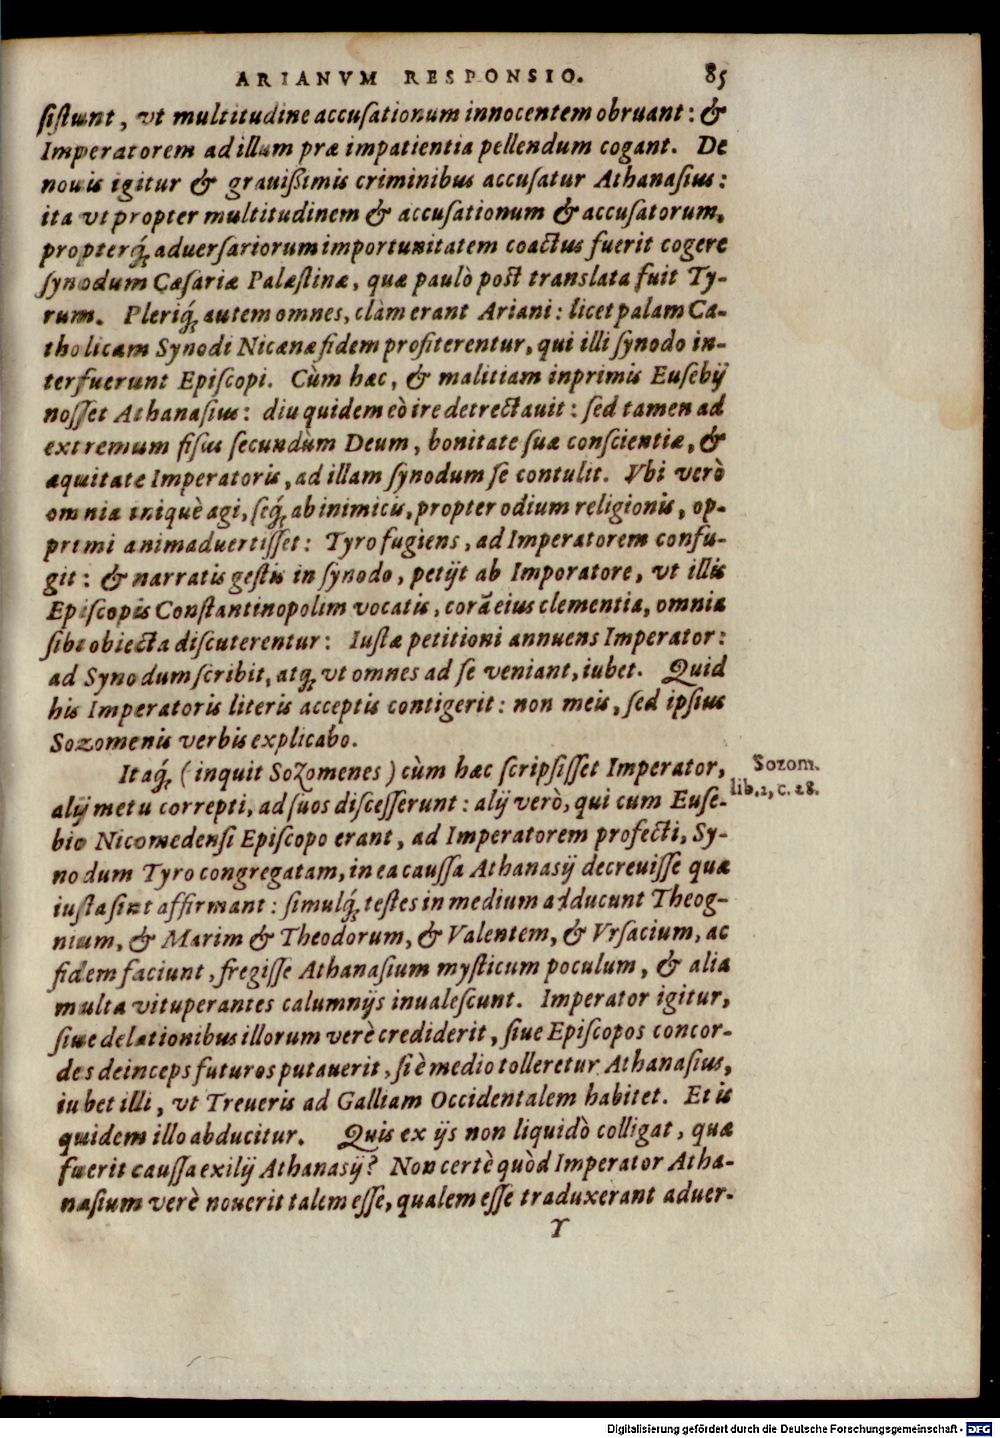 ARIANVM RESPONSIO. 85
ſiſtunt, vt multitudine accuſationum innocentem obruant: &
Imperatorem ad illum præ impatientia pellendum cogant. De
nouis igitur & grauißimis criminibus accuſatur Athanaſius:
ita vt propter multitudinem & accuſationum & accuſatorum,
propterq́; aduerſariorum importunitatem coactus fuerit cogere
ſynodum Cæſariæ Palæſtinæ, quæ paulò poſt translata fuit Ty-
rum. Pleriq́; autem omnes, clàm erant Ariani: licet palam Ca-
tholicam Synodi Nicænæ fidem profiterentur, qui illi ſynodo in-
terfuerunt Epiſcopi. Cùm hæc, & malitiam inprimis Euſebij
noſſet Athanaſius: diu quidem eò ire detrectauit: ſed tamen ad
extremum fiſus ſecundùm Deum, bonitate ſuæ conſcientiæ, &
æquitate Imperatoris, ad illam ſynodum ſe contulit. Vbi verò
omnia iniquè agi, ſeq́; ab inimicis, propter odium religionis, op-
primi animaduertiſſet: Tyro fugiens, ad Imperatorem confu-
git: & narratis geſtis in ſynodo, petijt ab Imporatore, vt illis
Epiſcopis Conſtantinopolim vocatis, corã eius clementia, omnia
ſibi obiecta diſcuterentur: Iuſtæ petitioni annuens Imperator:
ad Synodum ſcribit, atq; vt omnes ad ſe veniant, iubet. Quid
his Imperatoris literis acceptis contigerit: non meis, ſed ipſius
Sozomenis verbis explicabo.
Itaq́; (inquit Sozomenes) cùm hæc ſcripſiſſet Imperator,
Sozom.
alij metu correpti, ad ſuos diſceſſerunt: alij verò, qui cum Euſe-
lib.2, c. 28.
bio Nicomedenſi Epiſcopo erant, ad Imperatorem profecti, Sy-
nodum Tyro congregatam, in ea cauſſa Athanaſij decreuiſſe quæ
iuſta ſint affirmant: ſimulq́; teſtes in medium adducunt Theog-
nium, & Marim & Theodorum, & Valentem, & Vrſacium, ac
fidem faciunt, fregiſſe Athanaſium myſticum poculum, & alia
multa vituperantes calumnijs inualeſcunt. Imperator igitur,
ſiue delationibus illorum verè crediderit, ſiue Epiſcopos concor-
des deinceps futuros putauerit, ſi è medio tolleretur Athanaſius,
iubet illi, vt Treueris ad Galliam Occidentalem habitet. Et is
quidem illo abducitur. Quis ex ijs non liquidò colligat, quæ
fuerit cauſſa exilij Athanaſij? Non certè quòd Imperator Atha-
naſium verè nouerit talem eſſe, qualem eſſe traduxerant aduer-
Y
Digitalisierung gefördert durch die Deutsche Forschungsgemeinschaft - DFG